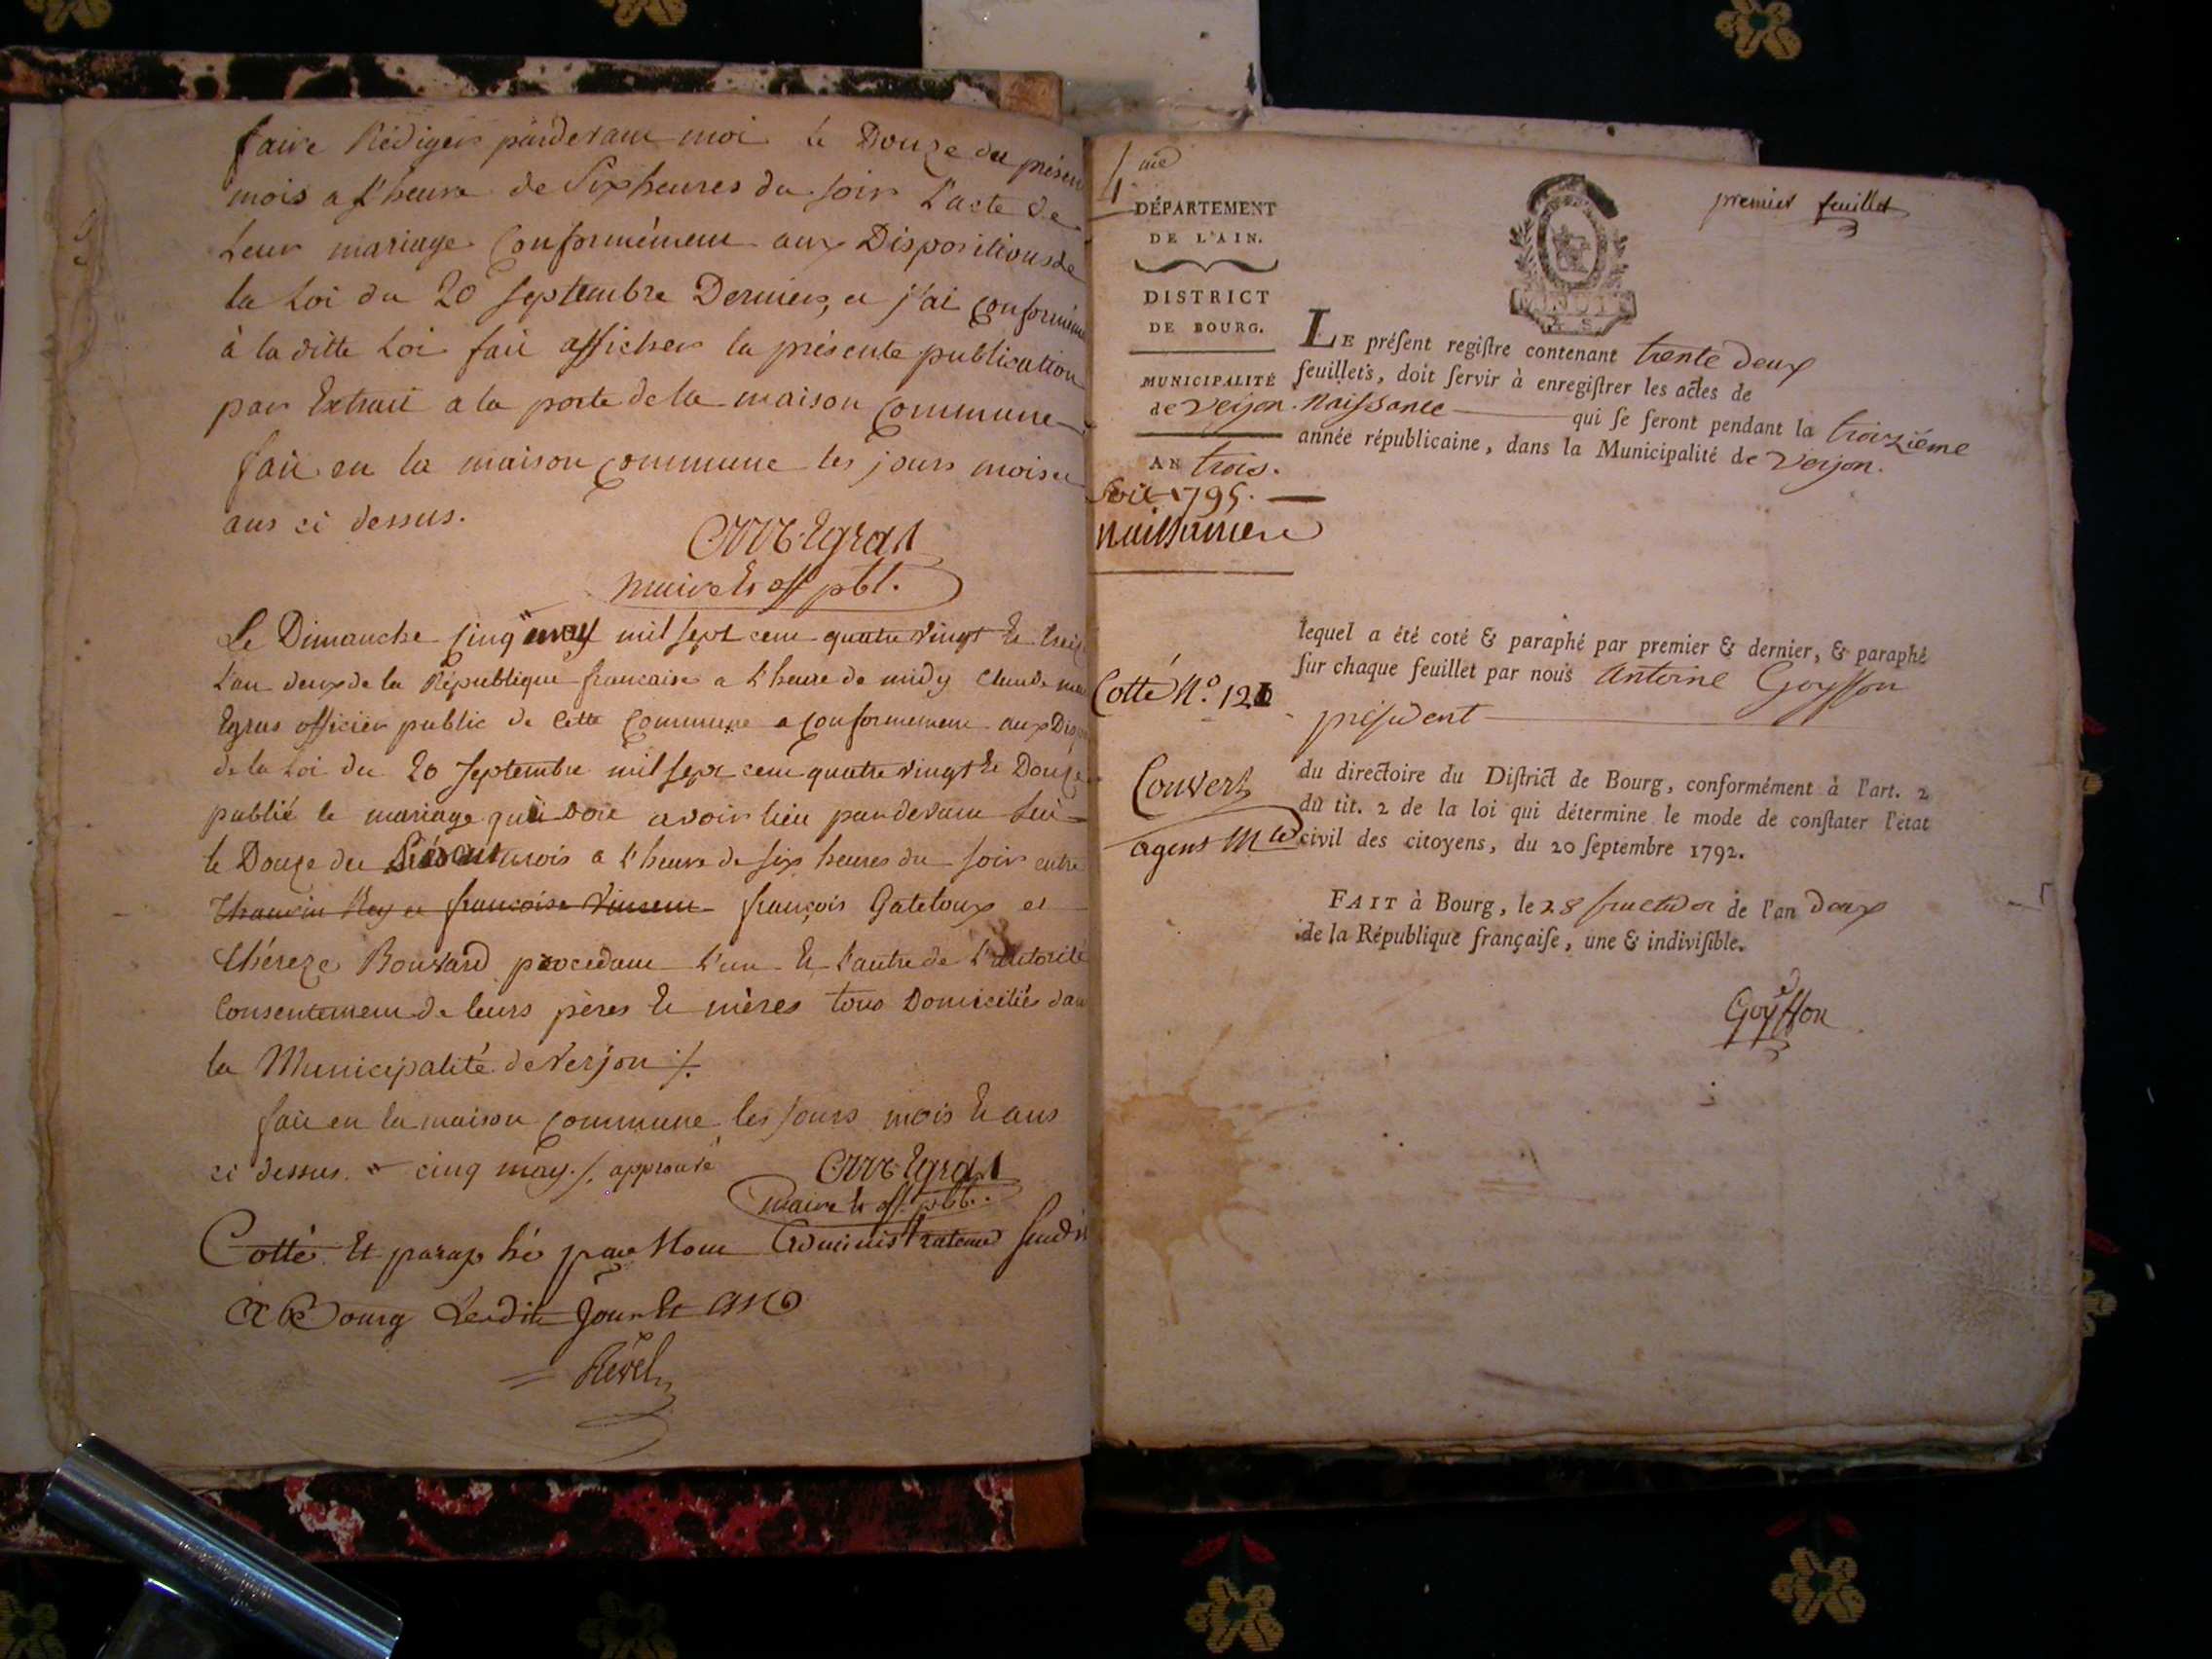 faire Rédiger pardevant moi le Douze du présent
mois a l'heure de Six heures du soir l'acte de
leur mariage Conformément aux Dispositions de
la Loi du 20 septembre Dernier, et j'ai conformém
à la ditte Loi fait afficher la présente publication
par Extrait a la porte de la maison commune
fait en la maison commune les jours mois et
ans ci dessus.
Egras
maire et off pbl.
Le Dimanche cinq may mil sept cent quatre vingt et treize
l'an deux de la République francaise a l'heure de midy Claude ma
Egras officier public de cette commune a conformement aux Disp
de la Loi du 20 Septembre mil sept cent quatre vingt et Douze
publié le mariage qui doit avoir lieu pardevant lui
le Douze du présent mois a l'heure de six heures du soir entre
Rey et francoise Vincent françois Gateloup et
thérèze Bouvard procedant l'un et l'autre de l'autorité
Consentement de leurs pères et mères tous Domiciliés dan
la Municipalité de Verjon ./.
fait en la maison commune, les jours mois et ans
ci dessus. cinq may ./. approuvé
Egras
maire et off. pbl.
Cotté Et paraphé par Nous Administrateur
A Bourg Lesdits Jour Et an
Revel
4me
premier feuillet
DÉPARTEMENT
DE L'AIN.
DISTRICT
DE BOURG.
MUNICIPALITÉ
de Verjon.
AN trois.
Soit 1795.
Naissance
Cotté N.º 121
Convert
agent Mal
LE préſent regiſtre contenant trente deux
feuillets, doit ſervir à enregiſtrer les actes de
Naissance qui ſe feront pendant la troizième
année républicaine, dans la Municipalité de Verjon.
lequel a été coté & paraphé par premier & dernier, & paraphé
ſur chaque feuillet par nous Antoine Goyffon
préſident
du directoire du Diſtrict de Bourg, conformément à l'art. 2
du tit. 2 de la loi qui détermine le mode de conſtater l'état
civil des citoyens, du 20 ſeptembre 1792.
FAIT à Bourg, le 28 fructidor de l'an deux
de la République françaiſe, une & indiviſible.
Goyffon